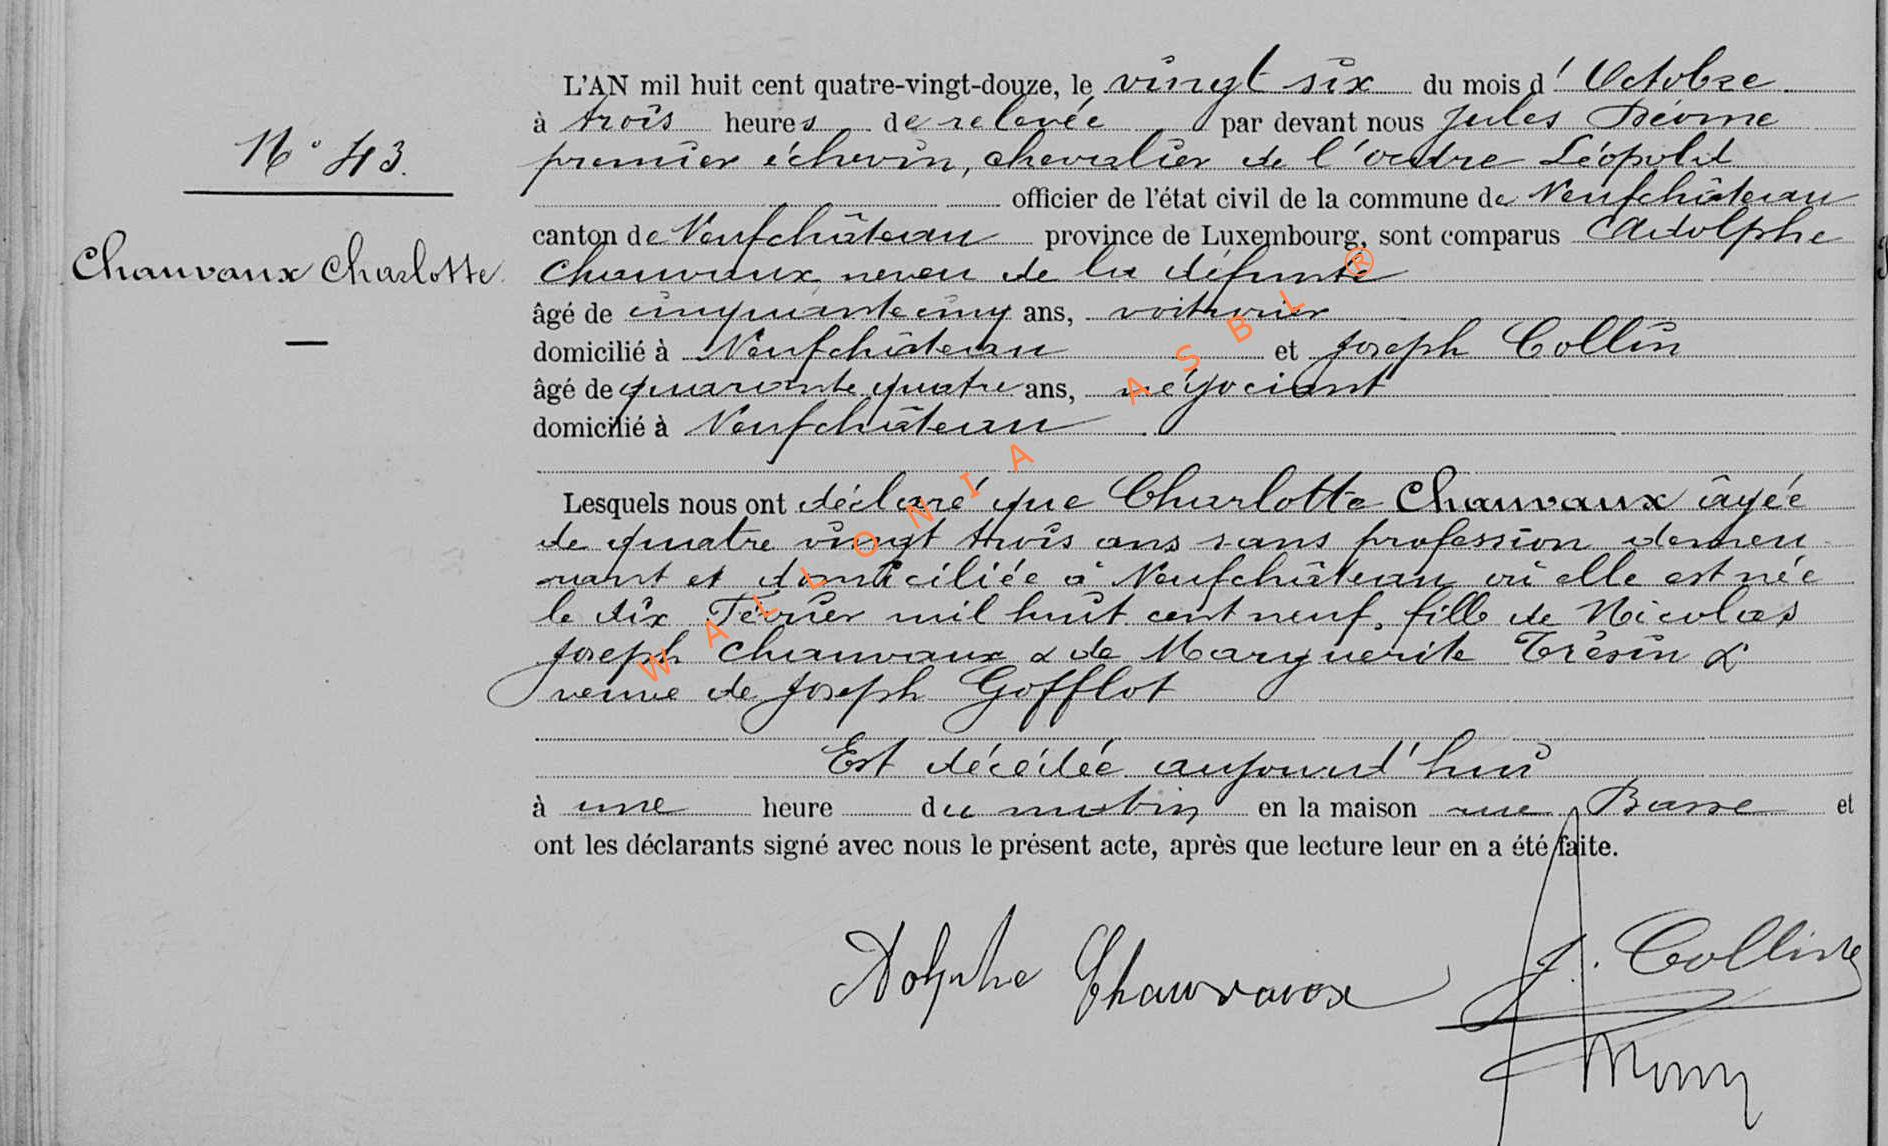 L'AN mil huit cent quatre-vingt-douze, le vingt six du mois d'Octobre
à trois heures de relevée par devant nous Jules Déome
N° 43.
premier échevin, chevalier de l'ordre Léopold
officier de l'état civil de la commune de Neufchâteau
canton de Neufchâteau province de Luxembourg, sont comparus Adolphe
Chauvaux Charlotte.
Chauvaux neveu de la défunte
âgé de cinquante cinq ans, voiturier
domicilié à Neufchâteau et Joseph Collin
âgé de quarante quatre ans, négociant
domicilié à Neufchâteau
Lesquels nous ont déclaré que Charlotte Chauvaux âgée
de quatre vingt trois ans sans profession demeu
rant et domiciliée à Neufchâteau où elle est née
le dix Février mil huit cent neuf, fille de Nicolas
Joseph Chauvaux & de Marguerite Trésin &
veuve de Joseph Gofflot
Est décédée aujourd'hui
à une heure du matin en la maison rue Basse et
ont les déclarants signé avec nous le présent acte, après que lecture leur en a été faite.
Adolphe Chauvaux
J. Collin
WALLONIA ASBL ®